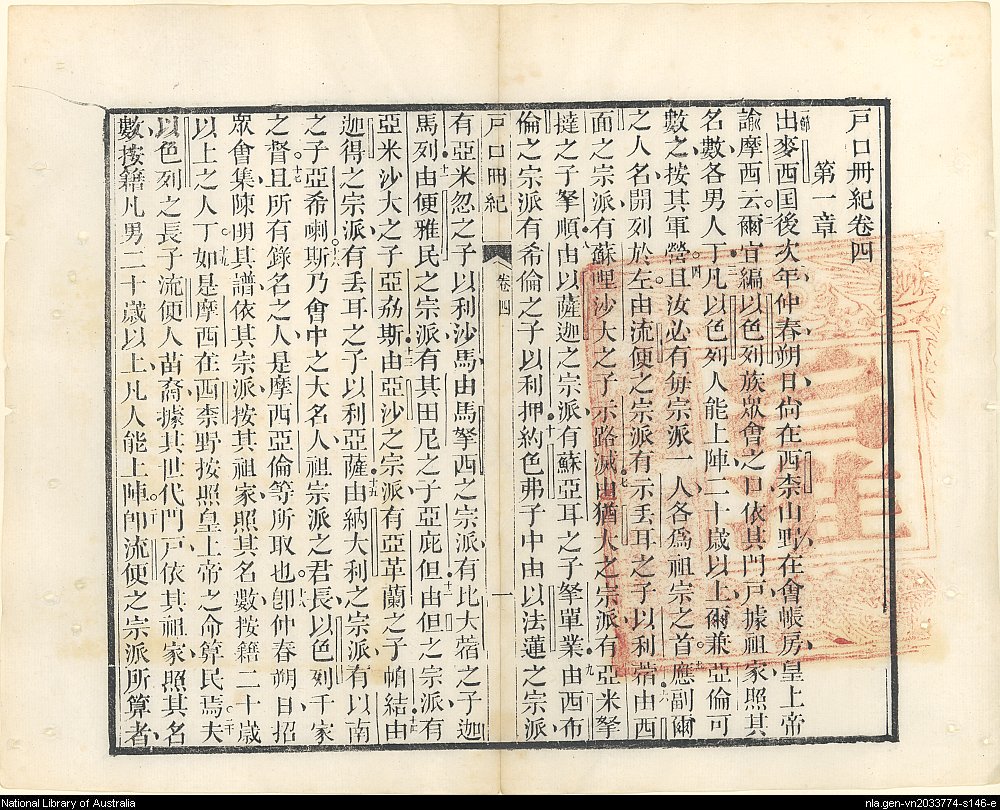 戶口冊紀卷四
第一章
出麥西囯後次年仲春朔日尙在西柰山野在會帳房皇上帝
諭摩西云爾宜編以色列族眾會之口依其門戶據祖家照其
名數各男人丁凡以色列人能上陣二十歲以上爾兼亞倫可
數之按其軍營且汝必有每宗派一人各爲祖宗之首應副爾
之人名開列於左由流便之宗派有示丟耳之子以利蓿由西
面之宗派有蘇哩沙大之子示路滅由猶大之宗派有亞米拏
撻之子拏順由以薩迦之宗派有蘇亞耳之子拏單業由西布
倫之宗派有希倫之子以利押約色弗子中由以法蓮之宗派
戶口冊紀 卷四 一
有亞米忽之子以利沙馬由馬拏西之宗派有比大蓿之子迦
馬列由便雅民之宗派有其田尼之子亞庇但由但之宗派有
亞米沙大之子亞劦斯由亞沙之宗派有亞革蘭之子帕結由
迦得之宗派有丟耳之子以利亞薩由納大利之宗派有以南
之子亞希喇斯乃會中之大名人祖宗派之君長以色列千家
之督且所有錄名之人是摩西亞倫等所取也卽仲春朔日招
眾會集陳明其譜依其宗派按其祖家照其名數按籍二十歲
以上之人丁如是摩西在西柰野按照皇上帝之命算民焉夫
以色列之長子流便人苗裔據其世代門戶依其祖家照其名
數按籍凡男二十歲以上凡人能上陣卽流便之宗派所算者
National Library of Australia
nla.gen-vn2033774-s146-e